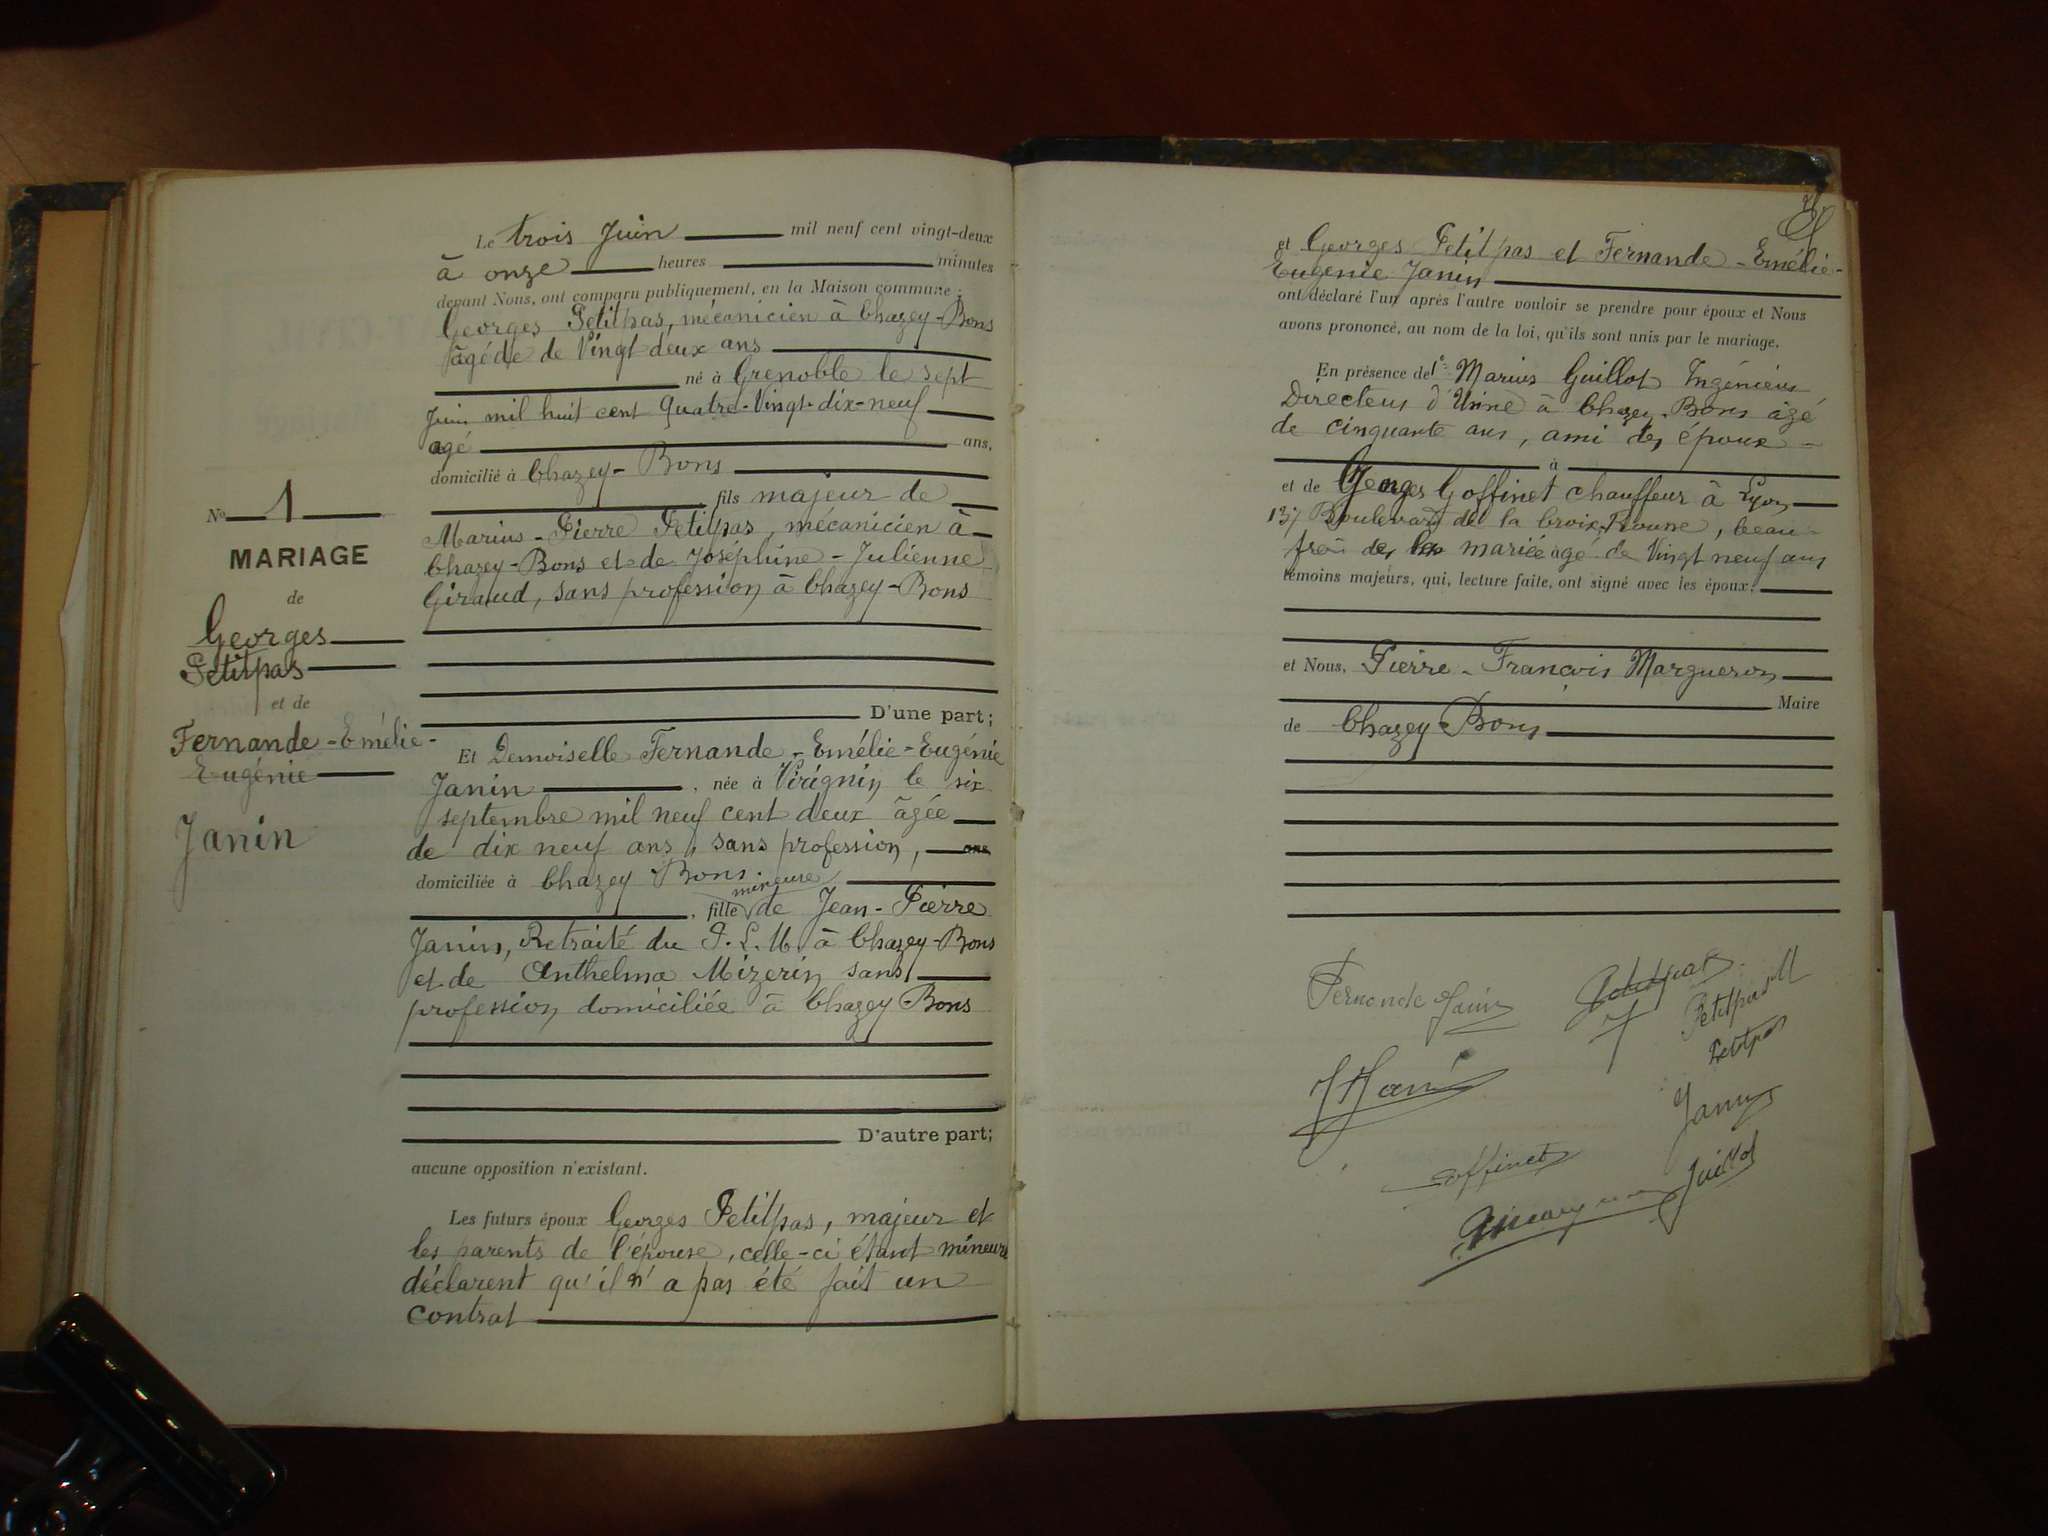 Le trois Juin mil neuf cent vingt-deux
à onze heures minutes
devant Nous, ont comparu publiquement, en la Maison commune :
Georges Petitpas, mécanicien à Chazey-Bons
âgé de Vingt deux ans
né à Grenoble le sept
Juin mil huit cent Quatre-Vingt-dix-neuf
agé ans.
domicilié à Chazey-Bons
fils majeur de
Marius-Pierre Petitpas, mécanicien à
Chazey-Bons et de Joséphine-Julienne
Giraud, sans profession à Chazey-Bons
D'une part;
Et Demoiselle Fernande-Emélie-Eugénie
Janin, née à Virignin le six
septembre mil neuf cent deux âgée
de dix neuf ans, sans profession, ans
domiciliée à Chazey Bons.
mineure
, fille de Jean-Pierre
Janin, Retraité du P.L.M. à Chazey-Bons
et de Anthelma Mizerin sans
profession domiciliée à Chazey Bons
D'autre part;
aucune opposition n'existant.
Les futurs époux Georges Petitpas, majeur et
les parents de l'épouse, celle-ci étant mineure
déclarent qu'il n'a pas été fait un
contrat
No 1
MARIAGE
de
Georges
Petitpas
et de
Fernande-Emélie-
Eugénie
Janin
et Georges Petitpas et Fernande-Emélie-
Eugénie Janin
ont déclaré l'un après l'autre vouloir se prendre pour époux et Nous
avons prononcé, au nom de la loi, qu'ils sont unis par le mariage.
En présence de 1e Marius Guillot Ingénieur
Directeur d'Usine à Chazey-Bons âgé
de cinquante ans, ami des époux
à
et de Georges Goffinet chauffeur à Lyon
137 Boulevard de la Croix Rousse, beau-
frère de la mariée âgé de Vingt neuf ans
témoins majeurs, qui, lecture faite, ont signé avec les époux.
et Nous, Pierre-François Margueron
Maire
de Chazey-Bons
Fernande Janin
Petitpas
Petitpas M
Petitpas
J Janin
Janin
Goffinet
Guillot